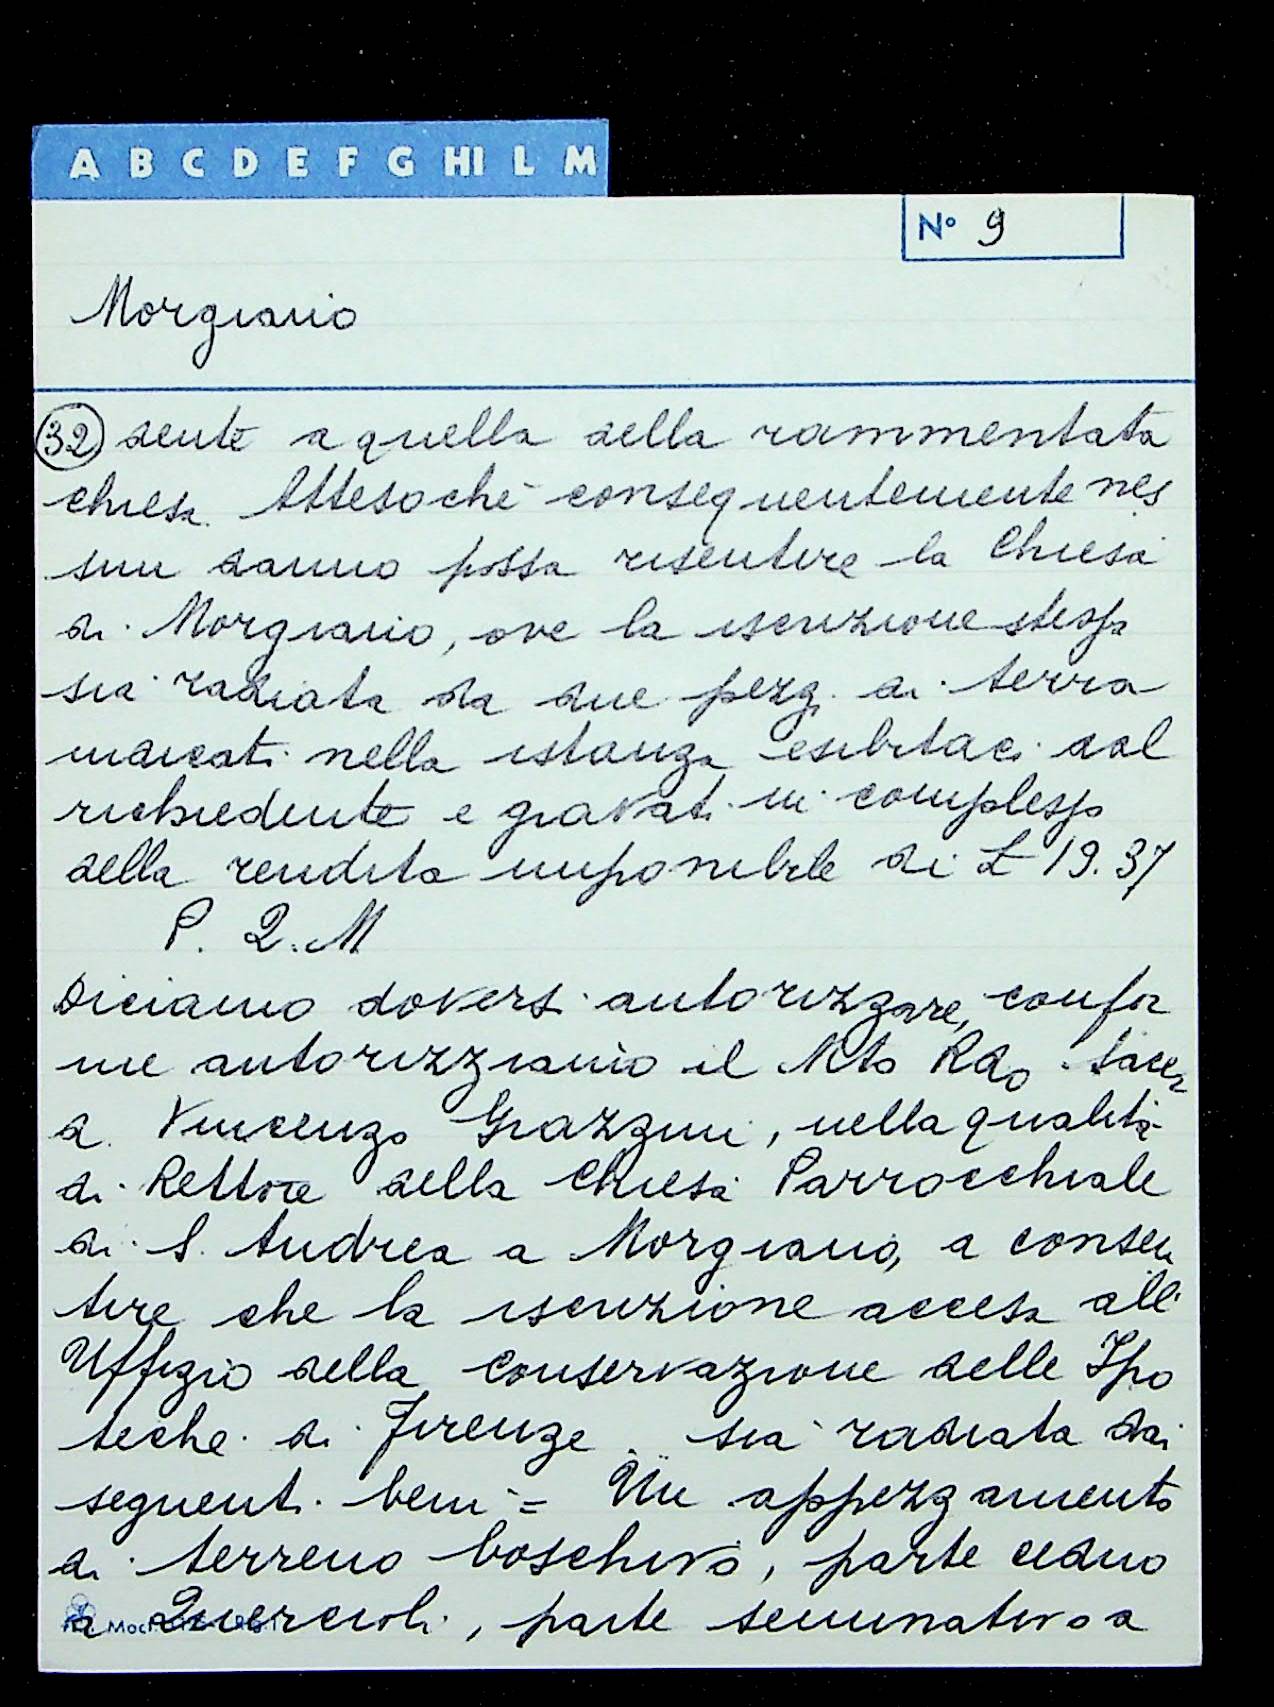 A B C D E F G HI L M
N° 9
Morgiano
32 dente a quella della rammentata
chiesa. Attesochè conseguentemente nes
sun danno possa risentire la Chiesa
di Morgiano, ove la iscrizione stessa
sia radiata da due pezzi di terra
indicati nella istanza esibitaci dal
richiedente e gravati in complesso
della rendita imponibile di £ 19.37
P. Q. M
Diciamo doversi autorizzare, confor
me autorizziamo il Mto Rdo Sacer
d. Vincenzo Grazzini, nella qualità
di Rettore della Chiesa Parrocchiale
di S. Andrea a Morgiano, a consen
tire che la iscrizione accesa all'
Uffizio della Conservazione delle Ipo
teche di Firenze. sia radiata dai
seguenti beni = Un appezzamento
di terreno boschivo, parte ceduo
a Quercioli, parte seminativo a